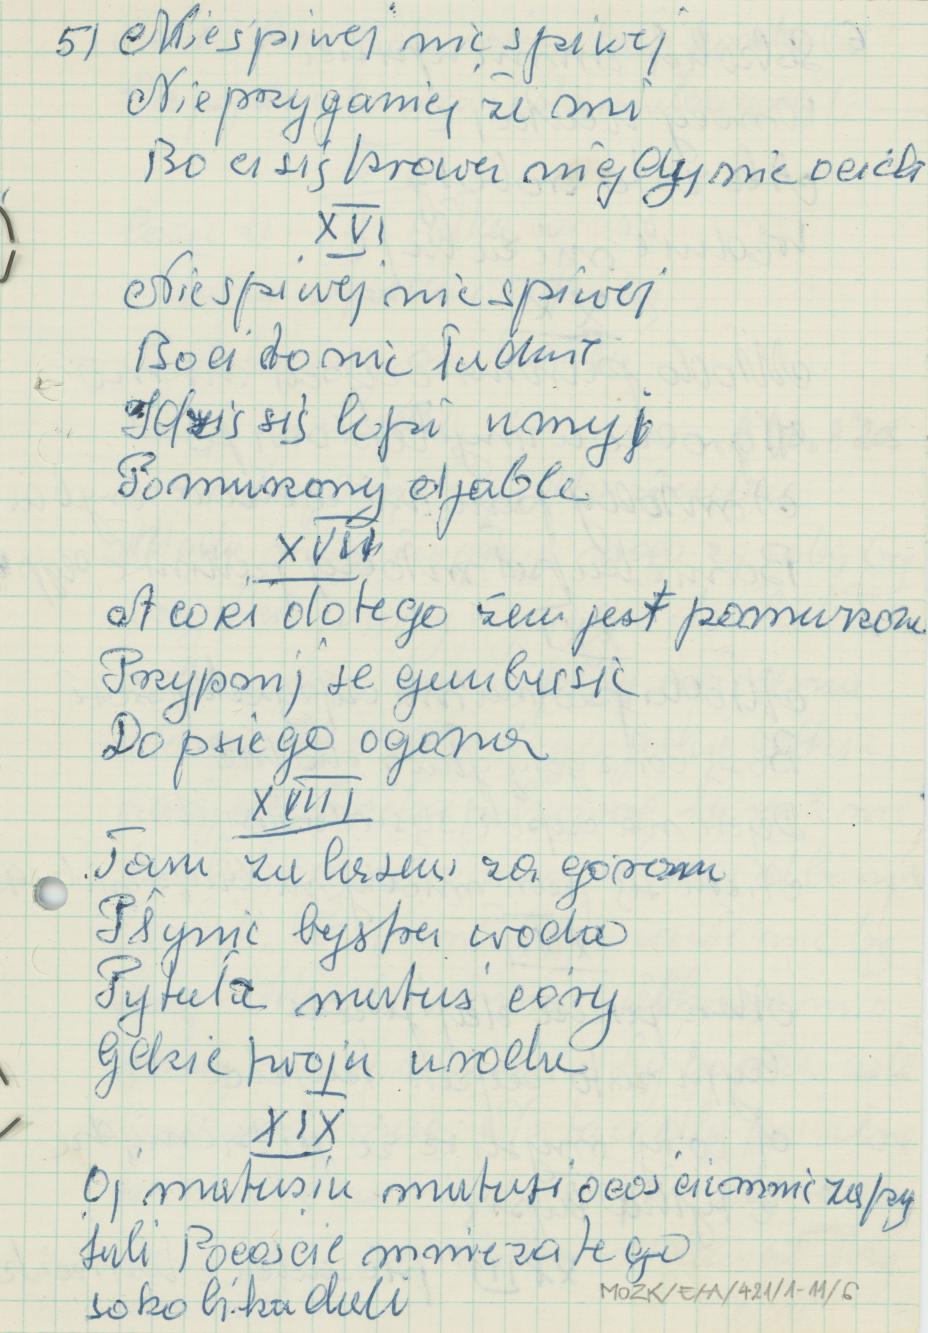 5) Niespiwej nie spiwej
Nieprzyganiej ze mi
Bo ci się krowa nigdy nie ocieli
XVI
Niespiwej nie spiwej
Bo ci to nie ładnie
Idzis się lepi umyj
Pomurzony djable
XVII
A cozci dotego żem jest pomurzona
Przyponj se gembusie
Do psiego ogona
XVIII
Tam za lasem za górom
Płynie bystra woda
Pytała matuś córy
Gdzie twoja uroda
XIX
Oj matusiu matusi ocoś ciemnie zapy
tali Pocoście mnie za tego
sokolika dali
MOZK/E/A/421/1-11/6